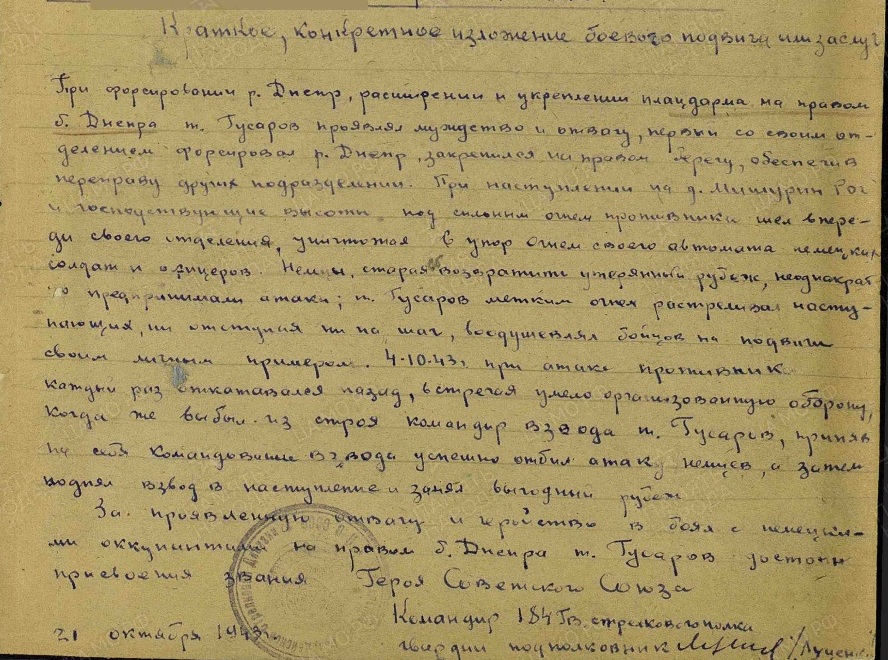 Краткое, конкретное изложение боевого подвига или заслуг
При форсировании р. Днепр, расширении и укреплении плацдарма на правом
б. Днепра т. Гусаров проявлял муждство и отвагу, первый со своим от-
делением форсировал р. Днепр, закрепился на правом берегу, обеспечив
переправу других подразделений. При наступлении на д. Мишурин Рог
и господствующие высоты под сильным огнем противника шел впере-
ди своего отделения, уничтожая в упор огнем своего автомата немецких
солдат и офицеров. Немцы, стараясь возвратить утерянный рубеж, неоднократ-
но предпринимали атаки; т. Гусаров метким огнем растреливал насту-
пающих, ни отступая ни на шаг, воодушевлял бойцов на подвиги
своим личным примером. 4.10.43г. при атаке противник
каждый раз откатывался назад, встречая умело организованную оборону,
Когда же выбыл из строя командир взвода т. Гусаров, приняв
на себя командование взвода успешно отбил атаку немцев, а затем
поднял взвод в наступление и занял выгодный рубеж
За проявленную отвагу и геройство в боях с немецки-
ми оккупантами на правом б. Днепра т. Гусаров достоин
присвоения звания Героя Советского Союза
Командир 184 Гв. стрелкового полка
21 октября 1943г. гвардии подполковник